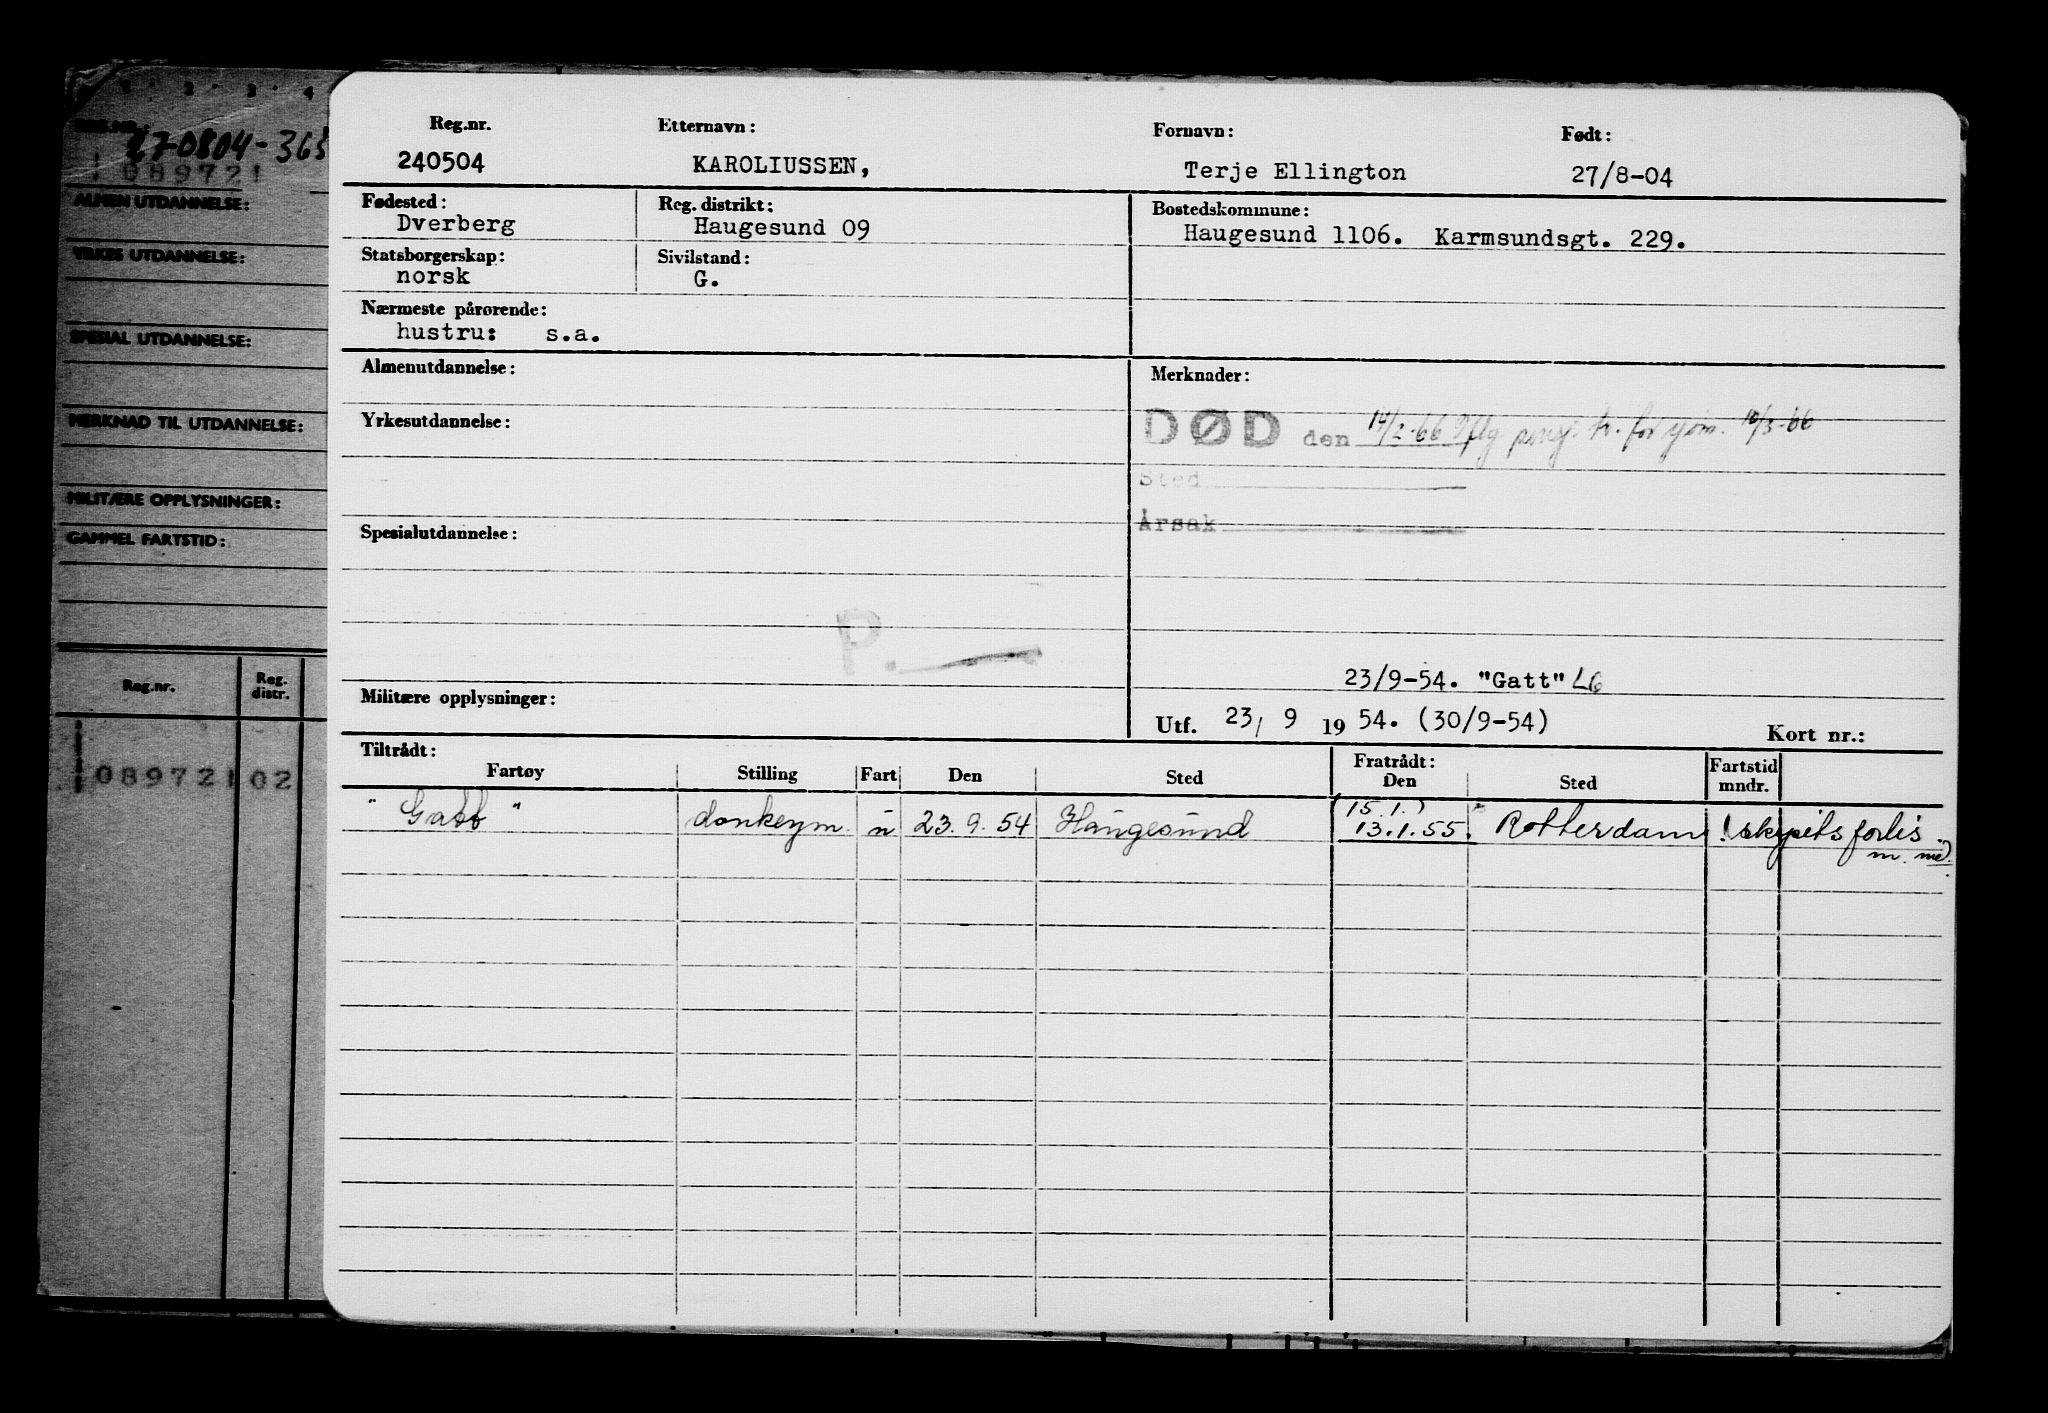 1 2 3 4
REG.NR.:
270804-365
108972!
ALMEN UTDANNELSE:
YRKES UTDANNELSE:
SPESIAL UTDANNELSE:
MERKNAD TIL UTDANNELSE:
MILITÆRE OPPLYSNINGER:
GAMMEL FARTSTID:
Reg.nr. Reg. distr.
108972! 02
Reg.nr. Etternavn: Fornavn: Født:
240504 KAROLIUSSEN, Terje Ellington 27/8-04
Fødested: Reg. distrikt: Bostedskommune:
Dverberg Haugesund 09 Haugesund 1106. Karmsundsgt. 229.
Statsborgerskap: Sivilstand:
norsk G.
Nærmeste pårørende:
hustru: s.a.
Almenutdannelse: Merknader:
Yrkesutdannelse: DØD den 14/2-66 Iflg. pensj. tr. for sjøm. 10/3-66
Sted
Årsak
Spesialutdannelse:
P.
23/9-54. "Gatt" LG
Militære opplysninger:
Utf. 23/ 9 19 54. (30/9-54) Kort nr.:
Tiltrådt: Fratrådt: Fartstid
Fartøy Stilling Fart Den Sted Den Sted mndr.
(15.1.)
"Gatt" donkeym. u 23.9.54 Haugesund 13.1.55. Rotterdam (skipets forlis
m. me).